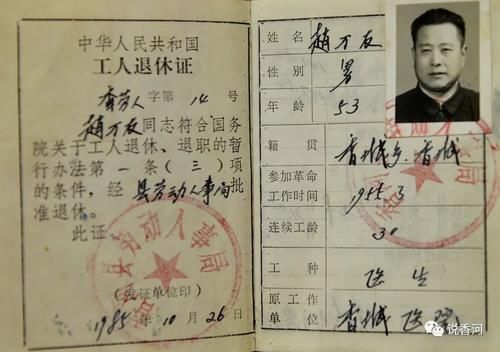 中华人民共和国
工人退休证
香劳人字第14号
赵万友同志符合国务
院关于工人退休、退职的暂
行办法第一条(三)项
的条件,经县劳动人事局批
准退休。
此证
(发证单位印)
1985年10月26日
姓名 赵万友
性别 男
年龄 53
籍贯 香城乡·香城
参加革命
工作时间 1955.3
连续工龄 30
工种 医生
原工作
单位 香城医院
县劳动人事局
悦香河